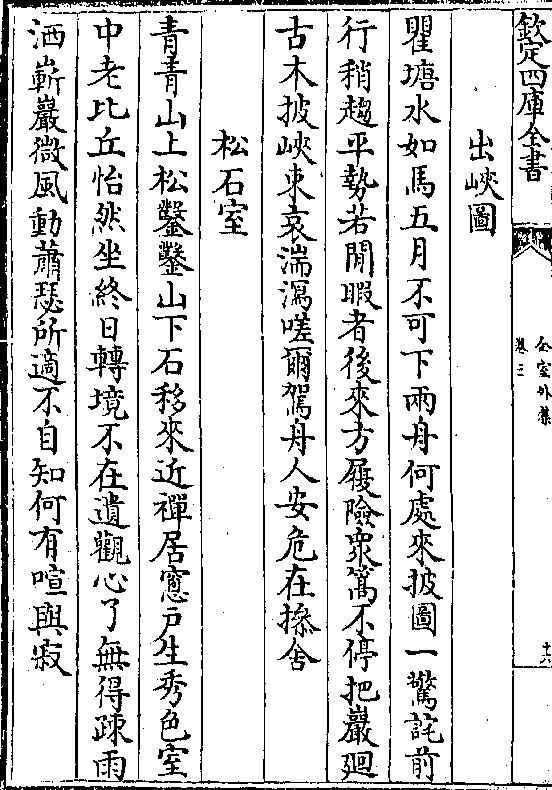 欽定四庫全書
全室外集
卷三
十六
出峽圖
瞿塘水如馬五月不可下兩舟何處來披圖一驚詫前
行稍趨平勢若閒暇者後來方履險衆篙不停把巖廻
古木披峽東哀湍瀉嗟爾駕舟人安危在摻舍
松石室
青青山上松鑿鑿山下石移來近禪居窻戶生秀色室
中老比丘怡然坐終日轉境不在遺觀心了無得疎雨
洒嶄巖微風動蕭瑟所適不自知何有喧與寂